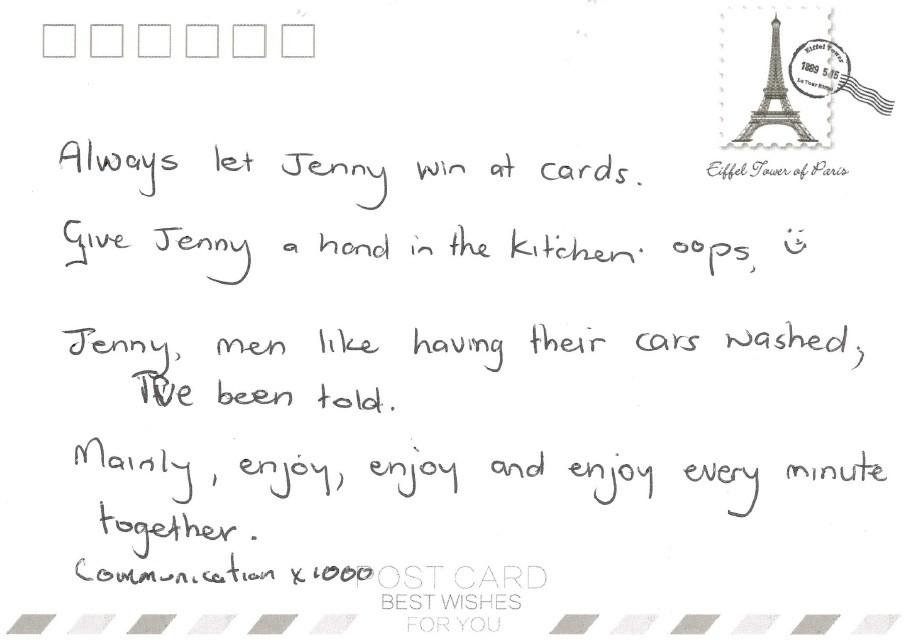 Eiffel Tower
1889 5.15
La Tour Eiffel
Eiffel Tower of Paris
Always let Jenny win at cards.
Give Jenny a hand in the kitchen. oops,
Jenny, men like having their cars washed,
I've been told.
Mainly, enjoy, enjoy and enjoy every minute
together.
Communication x 1000
POST CARD
BEST WISHES
FOR YOU